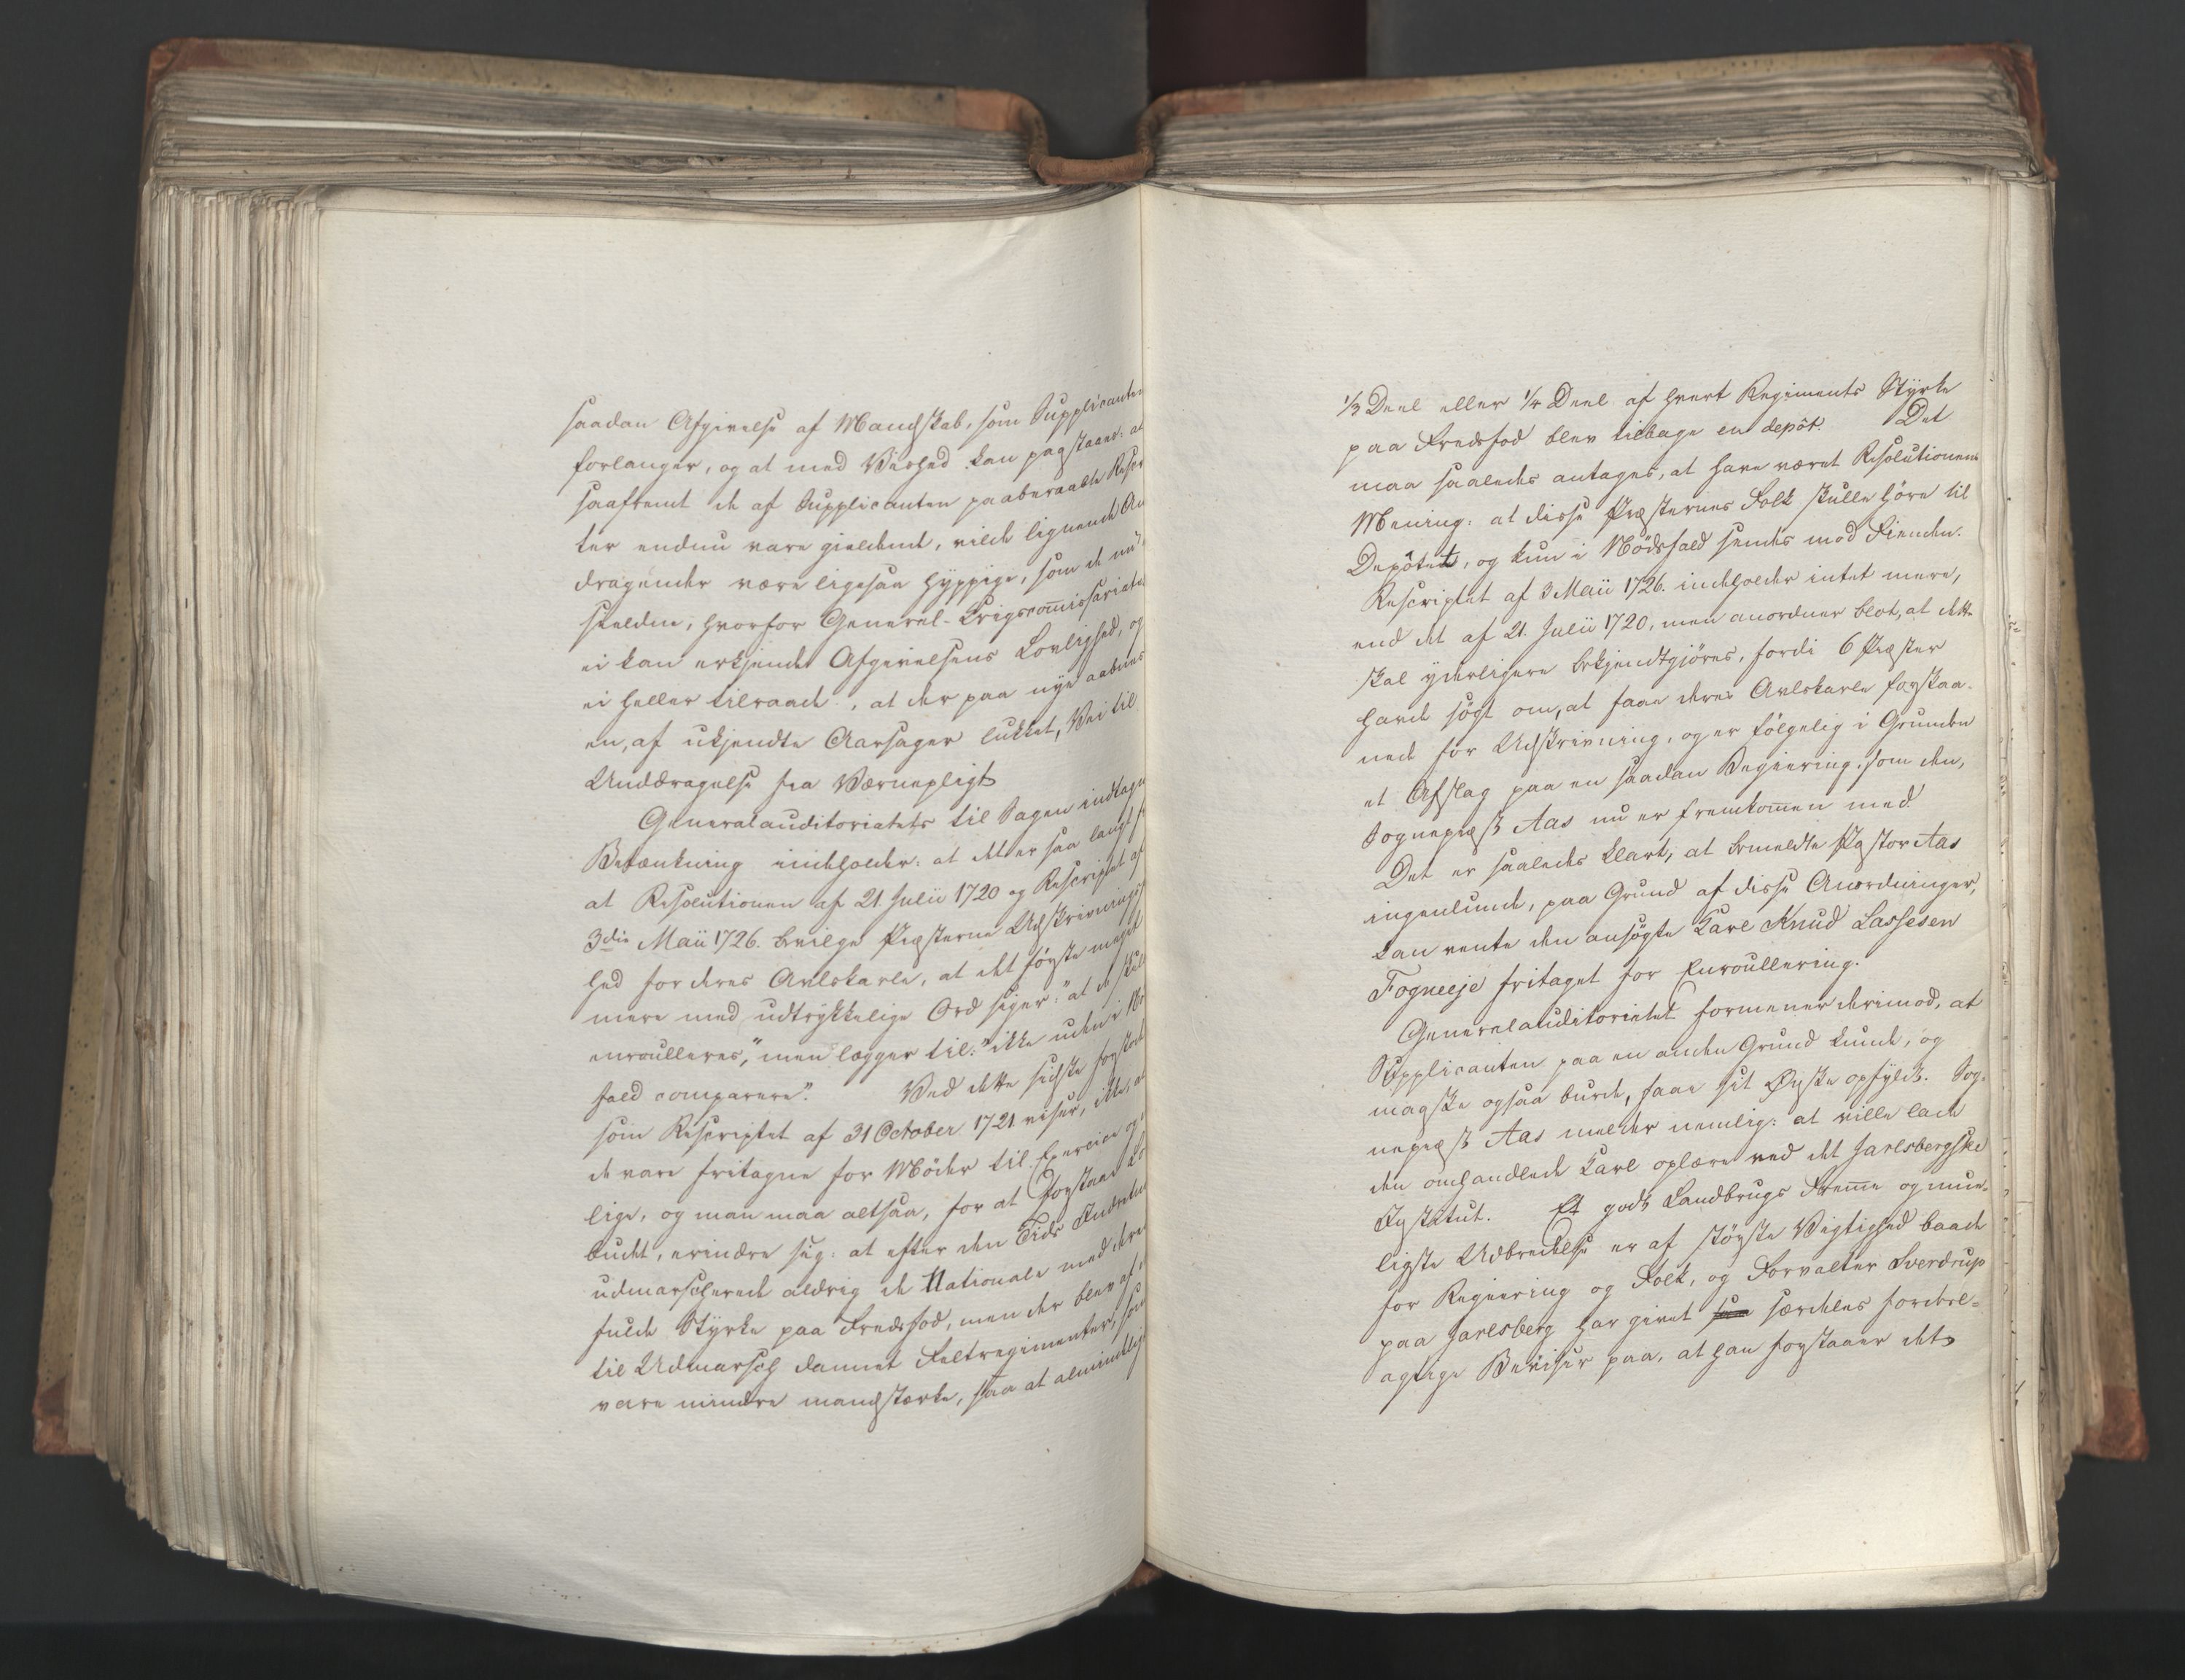 saadan Afgivelse af Mandskab, som Supplicanten
forlanger, og at med Vished kan paastaaes: at
saafremt de af Supplicanten paaberaabte Rescr
ter endnu vare gieldende, vilde lignende An
dragender være ligesaa hyppige, som de nu
sielden, hvorfor General-Krigscom̄issariatet
ei kan erkjende Afgivelsens Lovlighed, og
ei heller tilraade, at der paa nye aabnes
en, af ukjendte Aarsager lukket, Vei til
Unddragelse fra Værnepligt
Generalauditoriatets til Sagen indtagne
Betænkning indeholder: at det er saa langt fr
at Resolutionen af 21 Julii 1720 og Rescriptet af
3die Maii 1726. bevilge Præsterne Udskrivnings
hed for deres Avlskarle, at det første meget
mere med udtrykkelige Ord siger: "at de skulle
enroulleres," men lægger til: "ikke uden i Nø
fald comparere". Ved dette sidste forstod
som Rescriptet af 31 October 1721 viser, ikke, at
de vare fritagne for Møder til Exercice og
lige, og man maa altsaa, for at forstaae Lo
budet, erindre sig: at efter den Tids Indretni
udmarscherede aldrig de Nationale med deres
fulde Styrke paa Fredsfod, men der blev af,
til Udmarsch dannet Feltregimenter, som
vare mindre mandstærke, saa at almindelig
1/3 Deel eller 1/4 Deel af hvert Regiments Styrke
paa Fredsfod blev tilbage en depôt. Det
maa saaledes antages, at have været Resolutionens
Mening: at disse Præsternes Folk skulle høre til
Depôtet, og kun i Nødsfald sendes mod Fienden.
Rescriptet af 3 Maii 1726. indeholder intet mere,
end det af 21. Julii 1720, men anordner blot, at dette
skal yderligere bekjendtgjøres, fordi 6 Præster
havde søgt om, at faae deres Avlskarle forskaa-
nede for Udskrivning, og er følgelig i Grunden
et Afslag paa en saadan Begiering, som den,
Sognepræst Aas nu er fremkom̄en med.
Det er saaledes klart, at bemeldte Pastor Aas
ingenlunde, paa Grund af disse Anordninger,
kan vente den ansøgte Karl Knud Lassesen
Fogneeje fritaget for Enroullering.
Generalauditoriatet formener derimod, at
Supplicanten paa en anden Grund kunde, og
maaske ogsaa burde, faae sit Ønske opfyldt. Sog-
nepræst Aas melder nemlig: at ville lade
den omhandlede Karl oplære ved det Jarlsbergske
Institut. Et godt Landbrugs Frem̄e og mue-
ligste Udbredelse er af største Vigtighed baade
for Regiering og Folk, og Forvalter Sverdrup
paa Jarlsberg har givet saa særdeles fordeel-
agtige Beviser paa, at han forstaaer det